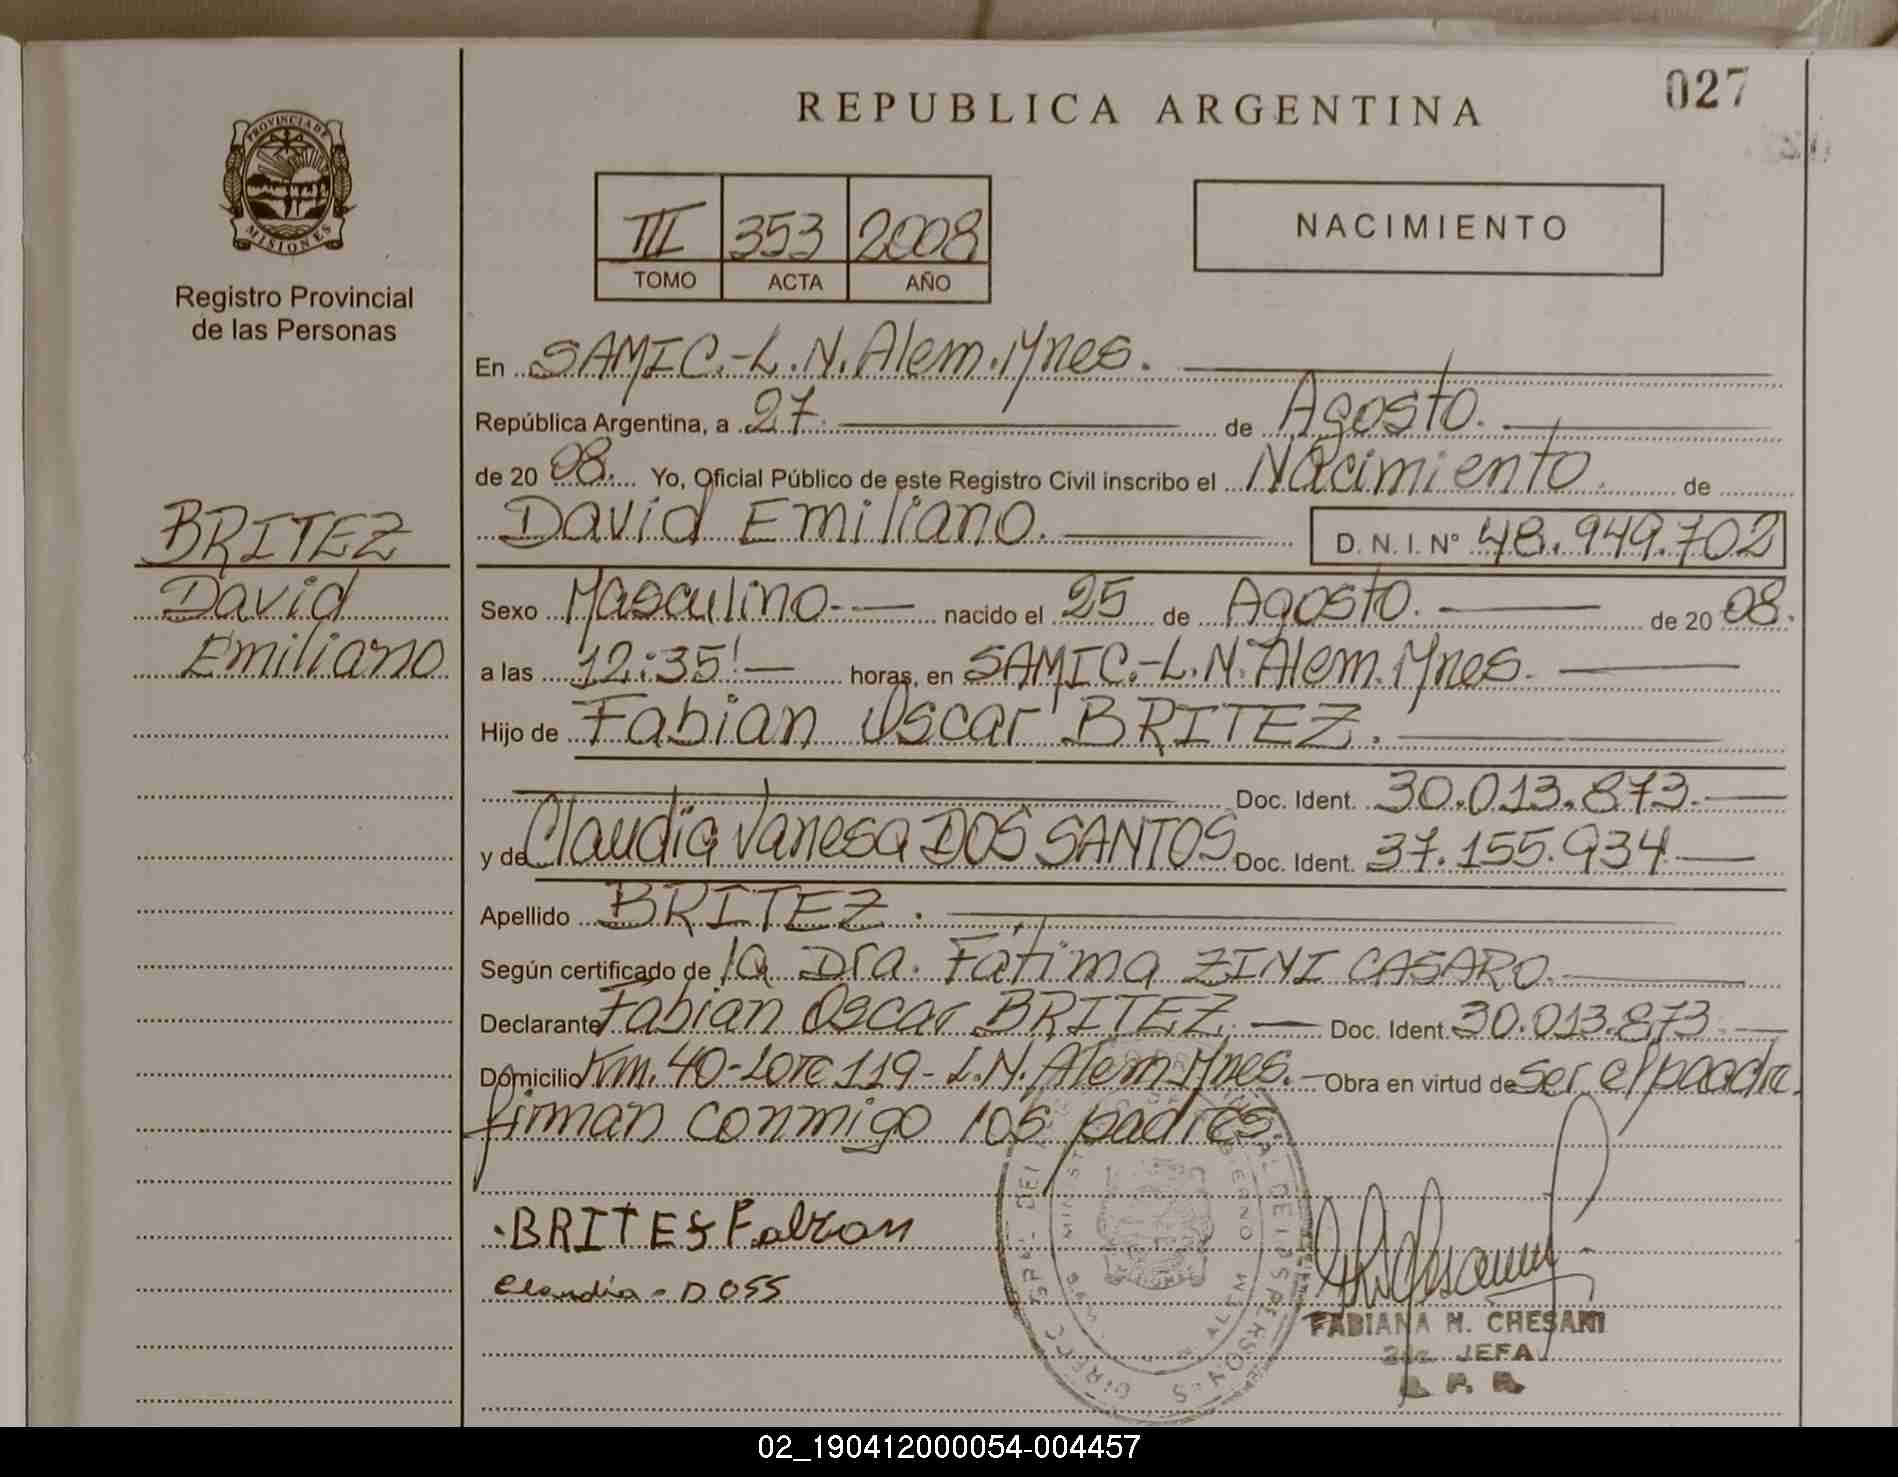 REPUBLICA ARGENTINA
027
PROVINCIA DE
MISIONES
Registro Provincial
de las Personas
III 353 2008
TOMO ACTA AÑO
NACIMIENTO
En SAMIC.-L.N.Alem.Mnes.
República Argentina, a 27 de Agosto.
de 20 08. Yo, Oficial Público de este Registro Civil inscribo el Nacimiento de
David Emiliano. D.N.I. Nº 48.949.702
BRITEZ
David
Emiliano
Sexo Masculino.- nacido el 25 de Agosto. de 20 08.
a las 12:35!- horas, en SAMIC.-L.N.Alem.Mnes.
Hijo de Fabian Oscar BRITEZ.
Doc. Ident. 30.013.873.-
y de Claudia Vanesa DOS SANTOS Doc. Ident. 37.155.934.-
Apellido BRITEZ.
Según certificado de la Dra. Fátima ZINI CASARO.
Declarante Fabian Oscar BRITEZ.- Doc. Ident. 30.013.873.-
Domicilio Km.40-Lote 119-L.N.Alem Mnes.- Obra en virtud de ser el paadre.
firman conmigo los padres.
BRITES Fabian
Claudia - DOSS
FABIANA N. CHESANI
JEFA
02_190412000054-004457